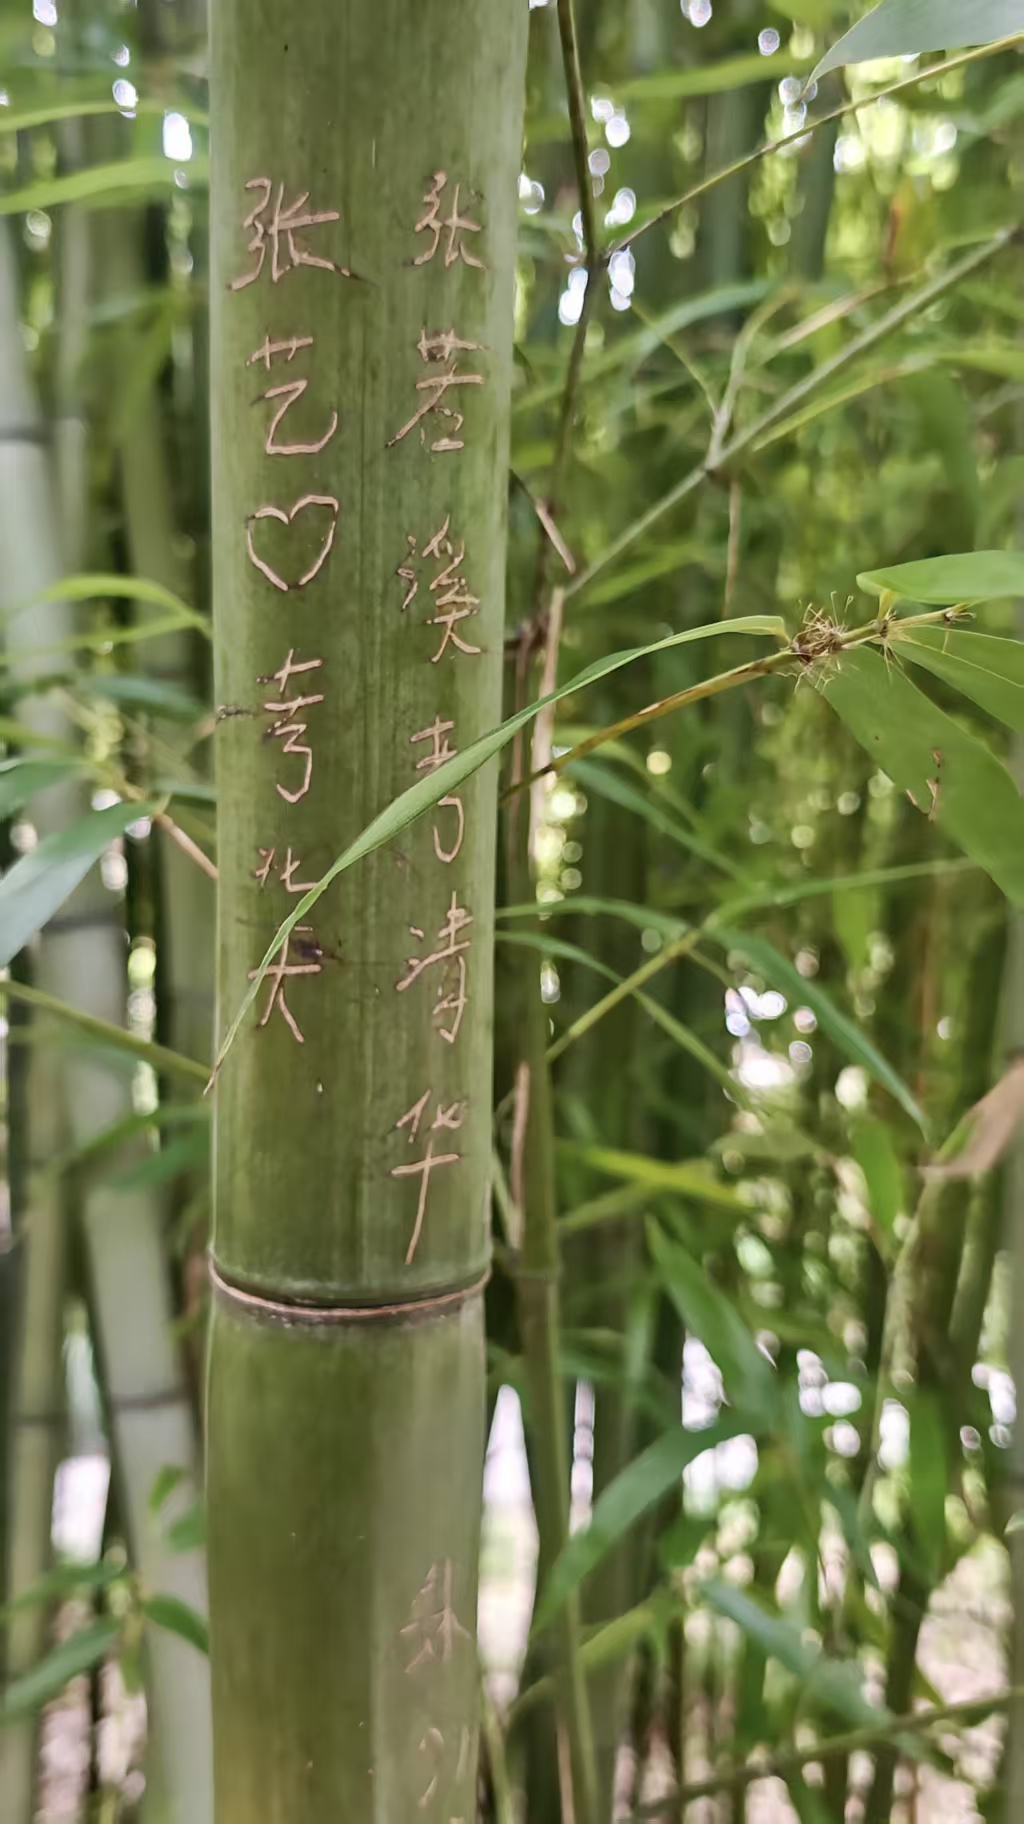 张若溪考清华
张艺♡考北大